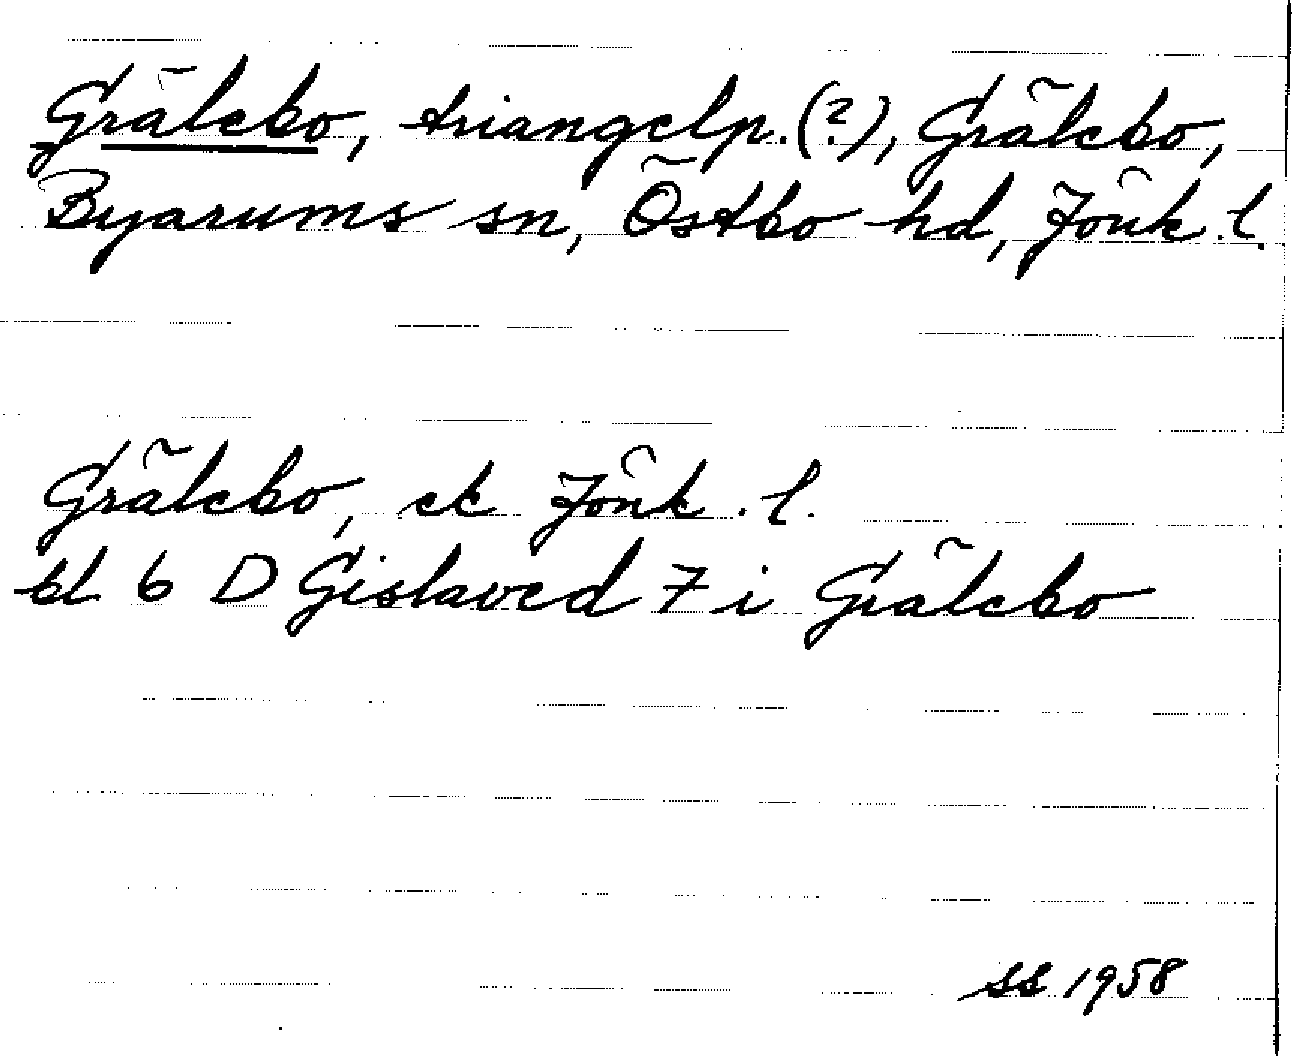 Grälebo, triangelp. (?), Grälebo,
Byarums sn, Östbo hd, Jönk. l.
Grälebo, ek Jönk. l.
bl 6 D Gislaved 7 i Grälebo
SS 1958